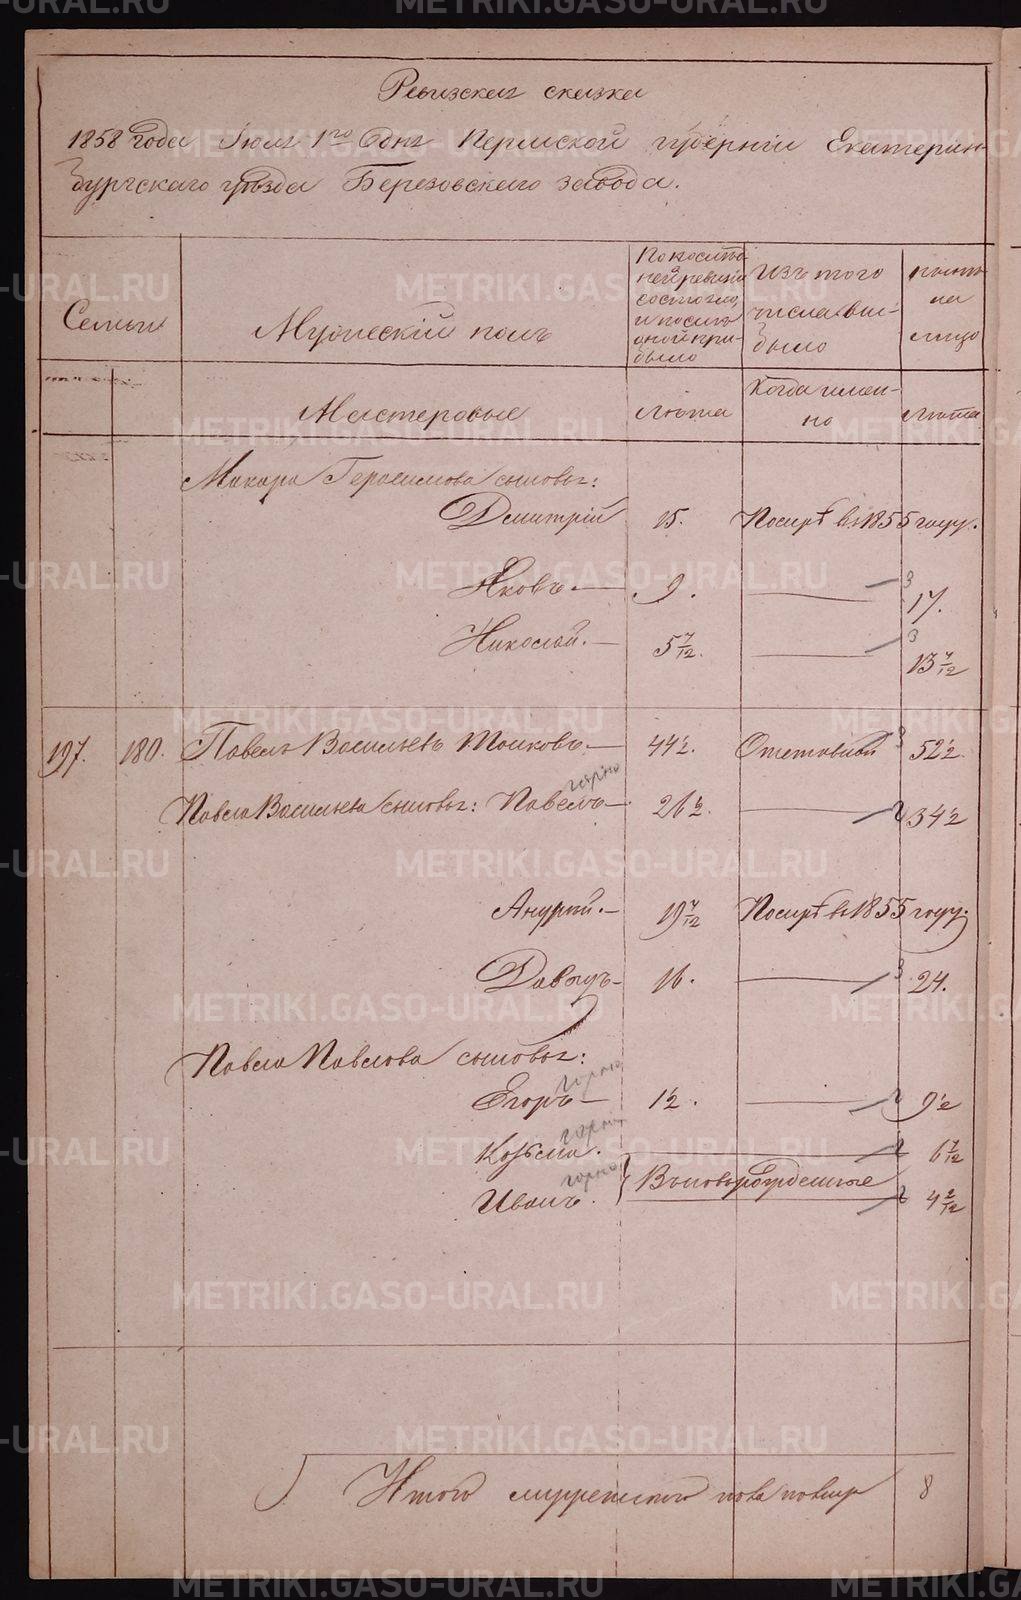 Ревизская сказка
1858 года Июля 1го дня Пермской губернiи Екатерин-
бургскаго уѣзда Березовскаго завода.
Семьи
Мужескiй полъ
По послѣд-
ней ревизiи
состояло,
и послѣ
оной при-
было
Изъ того
числа вы-
было
нынѣ
на
лицо
Мастеровые
лѣта
Когда имен-
но
лѣта
Макара Герасимова сыновья:
Дмитрiй 15. Померъ въ 1855 году.
Яковъ 9. — 3 17.
Николай. 5 7/12. — 3 13 7/12
197. 180. Павелъ Васильевъ 44 1/2. Отставной 3 52 1/2
горно
Павла Васильева сыновья: Павелъ 26 1/2. — 34 1/2
Андрей. 19 7/12 Померъ въ 1855 году.
Давыдъ 16. — 3 24.
Павла Павлова сыновья:
горно
Егоръ 1 1/2. — 9 1/2
горно
Козьма. 6 7/12
Вновьрожденные
горно
Иванъ. 4 2/12
Итого мужескаго пола 8
METRIKI.GASO-URAL.RU